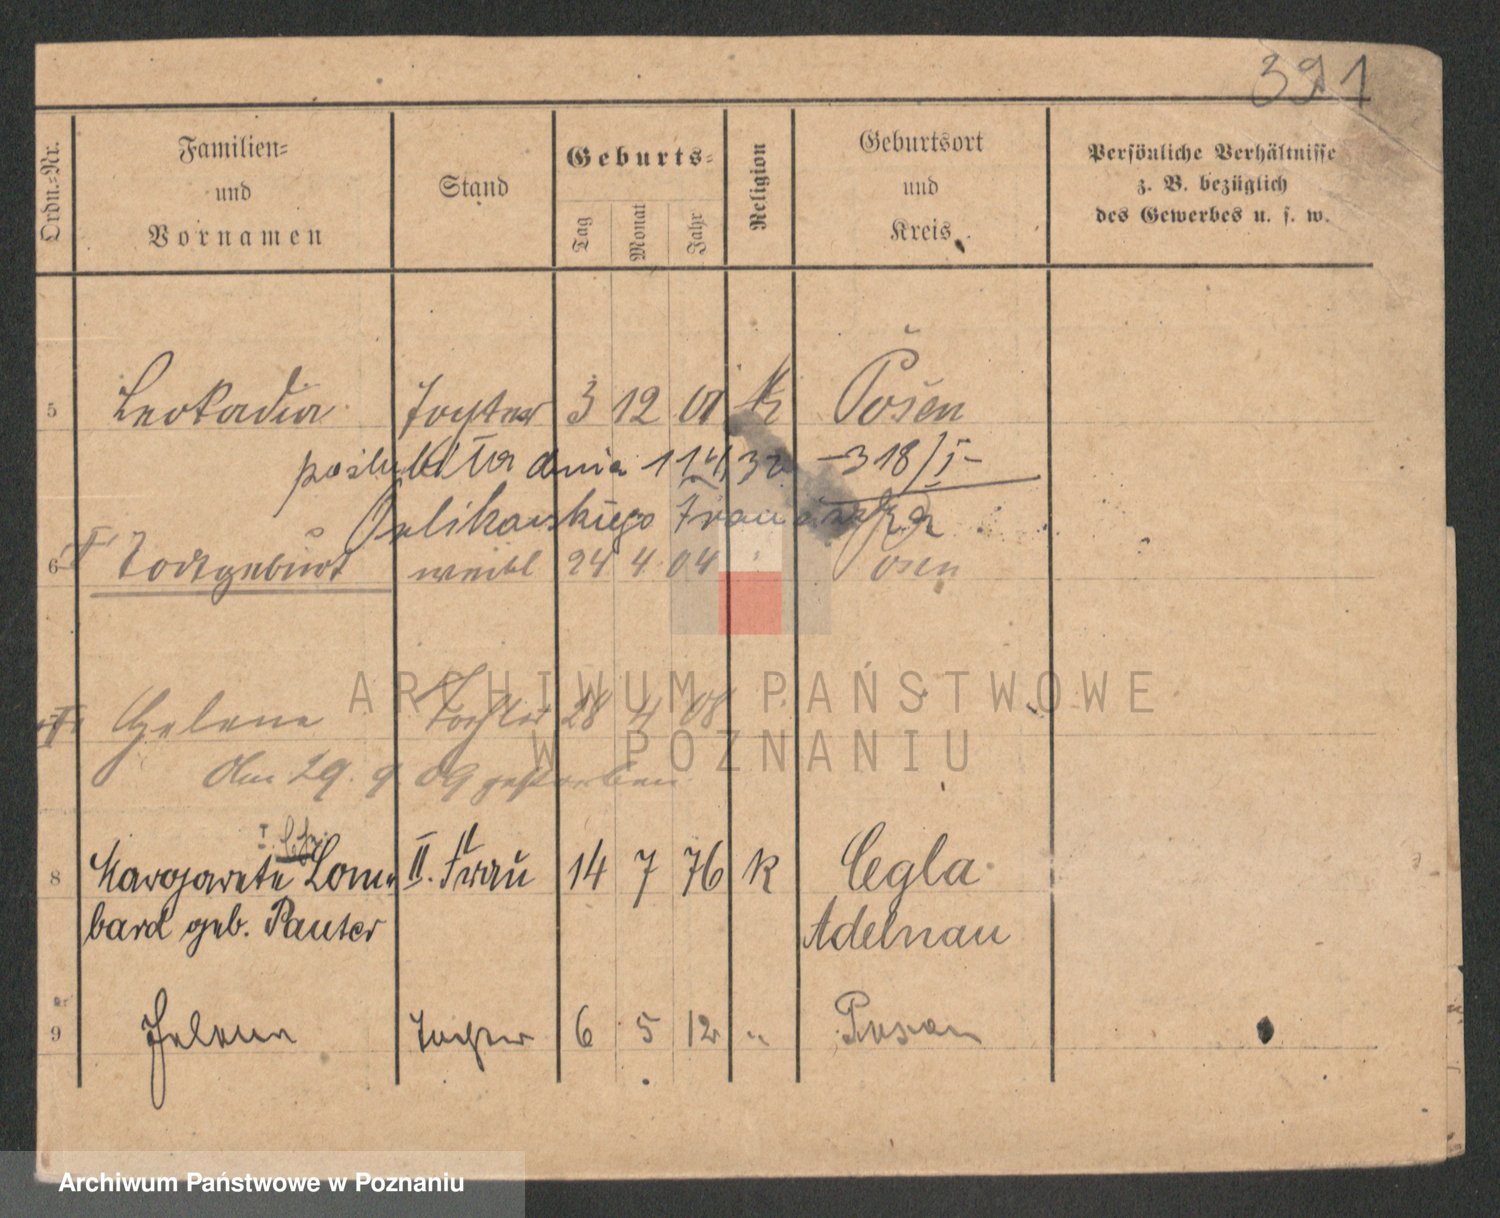 391
Ordn.-Nr.
Familien-
und
Vornamen
Stand
Geburts-
Tag
Monat
Jahr
Religion
Geburtsort
und
Kreis
Persönliche Verhältnisse
z. B. bezüglich
des Gewerbes u. s. w.
5 Leokadia Tochter 3 12 01 K Posen
poślubiła dnia 1 1 4/32 – 318/I –
Pelikańskiego
6 Todtgeburt weibl 24 4 04 " Posen
Helene Tochter 28 4 08
Am 29. 9 09 gestorben
8 Margarete Lom- II. Frau 14 7 76 K Cegla
bard geb. Pauter Adelnau
9 Helena Tochter 6 5 12 " Posen
ARCHIWUM PAŃSTWOWE
W POZNANIU
Archiwum Państwowe w Poznaniu